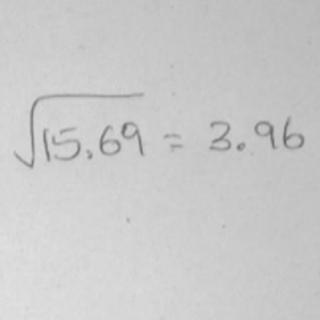 √15.69 = 3.96